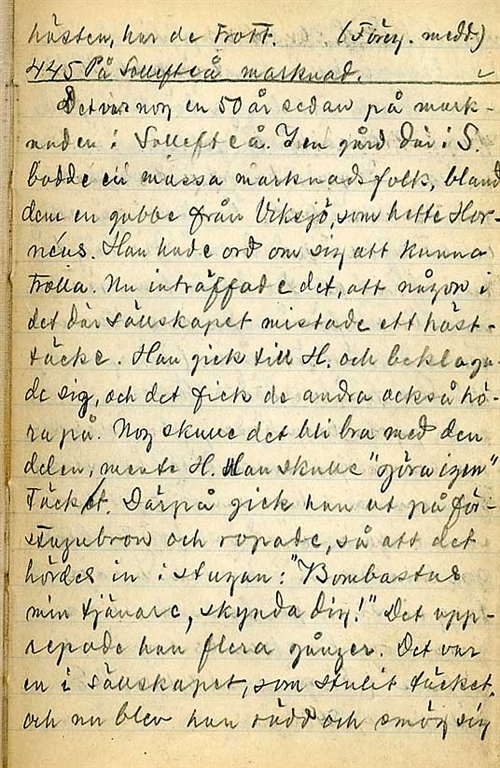 hästen, har de trott. (Föreg. medd.)
445 På Sollefteå marknad.
Det var nog en 50 år sedan på mark-
naden i Sollefteå. I en gård där i S.
bodde en massa marknadsfolk, bland
dem en gubbe från Viksjö, som hette Hor-
néus. Han hade ord om sig att kunna
trolla. Nu inträffade det, att någon i
det där sällskapet mistade ett häst-
täcke. Han gick till H. och beklaga-
de sig, och det fick de andra också hö-
ra på. Nog skulle det bli bra med den
delen, mente H. Han skulle "göra igen"
täcket. Därpå gick han ut på för-
stugubron och ropade, så att det
hördes in i stugan: "Bombastus
min tjänare, skynda dig!" Det upp-
repade han flera gånger. Det var
en i sällskapet, som stulit täcket,
och nu blev han rädd och smög sig